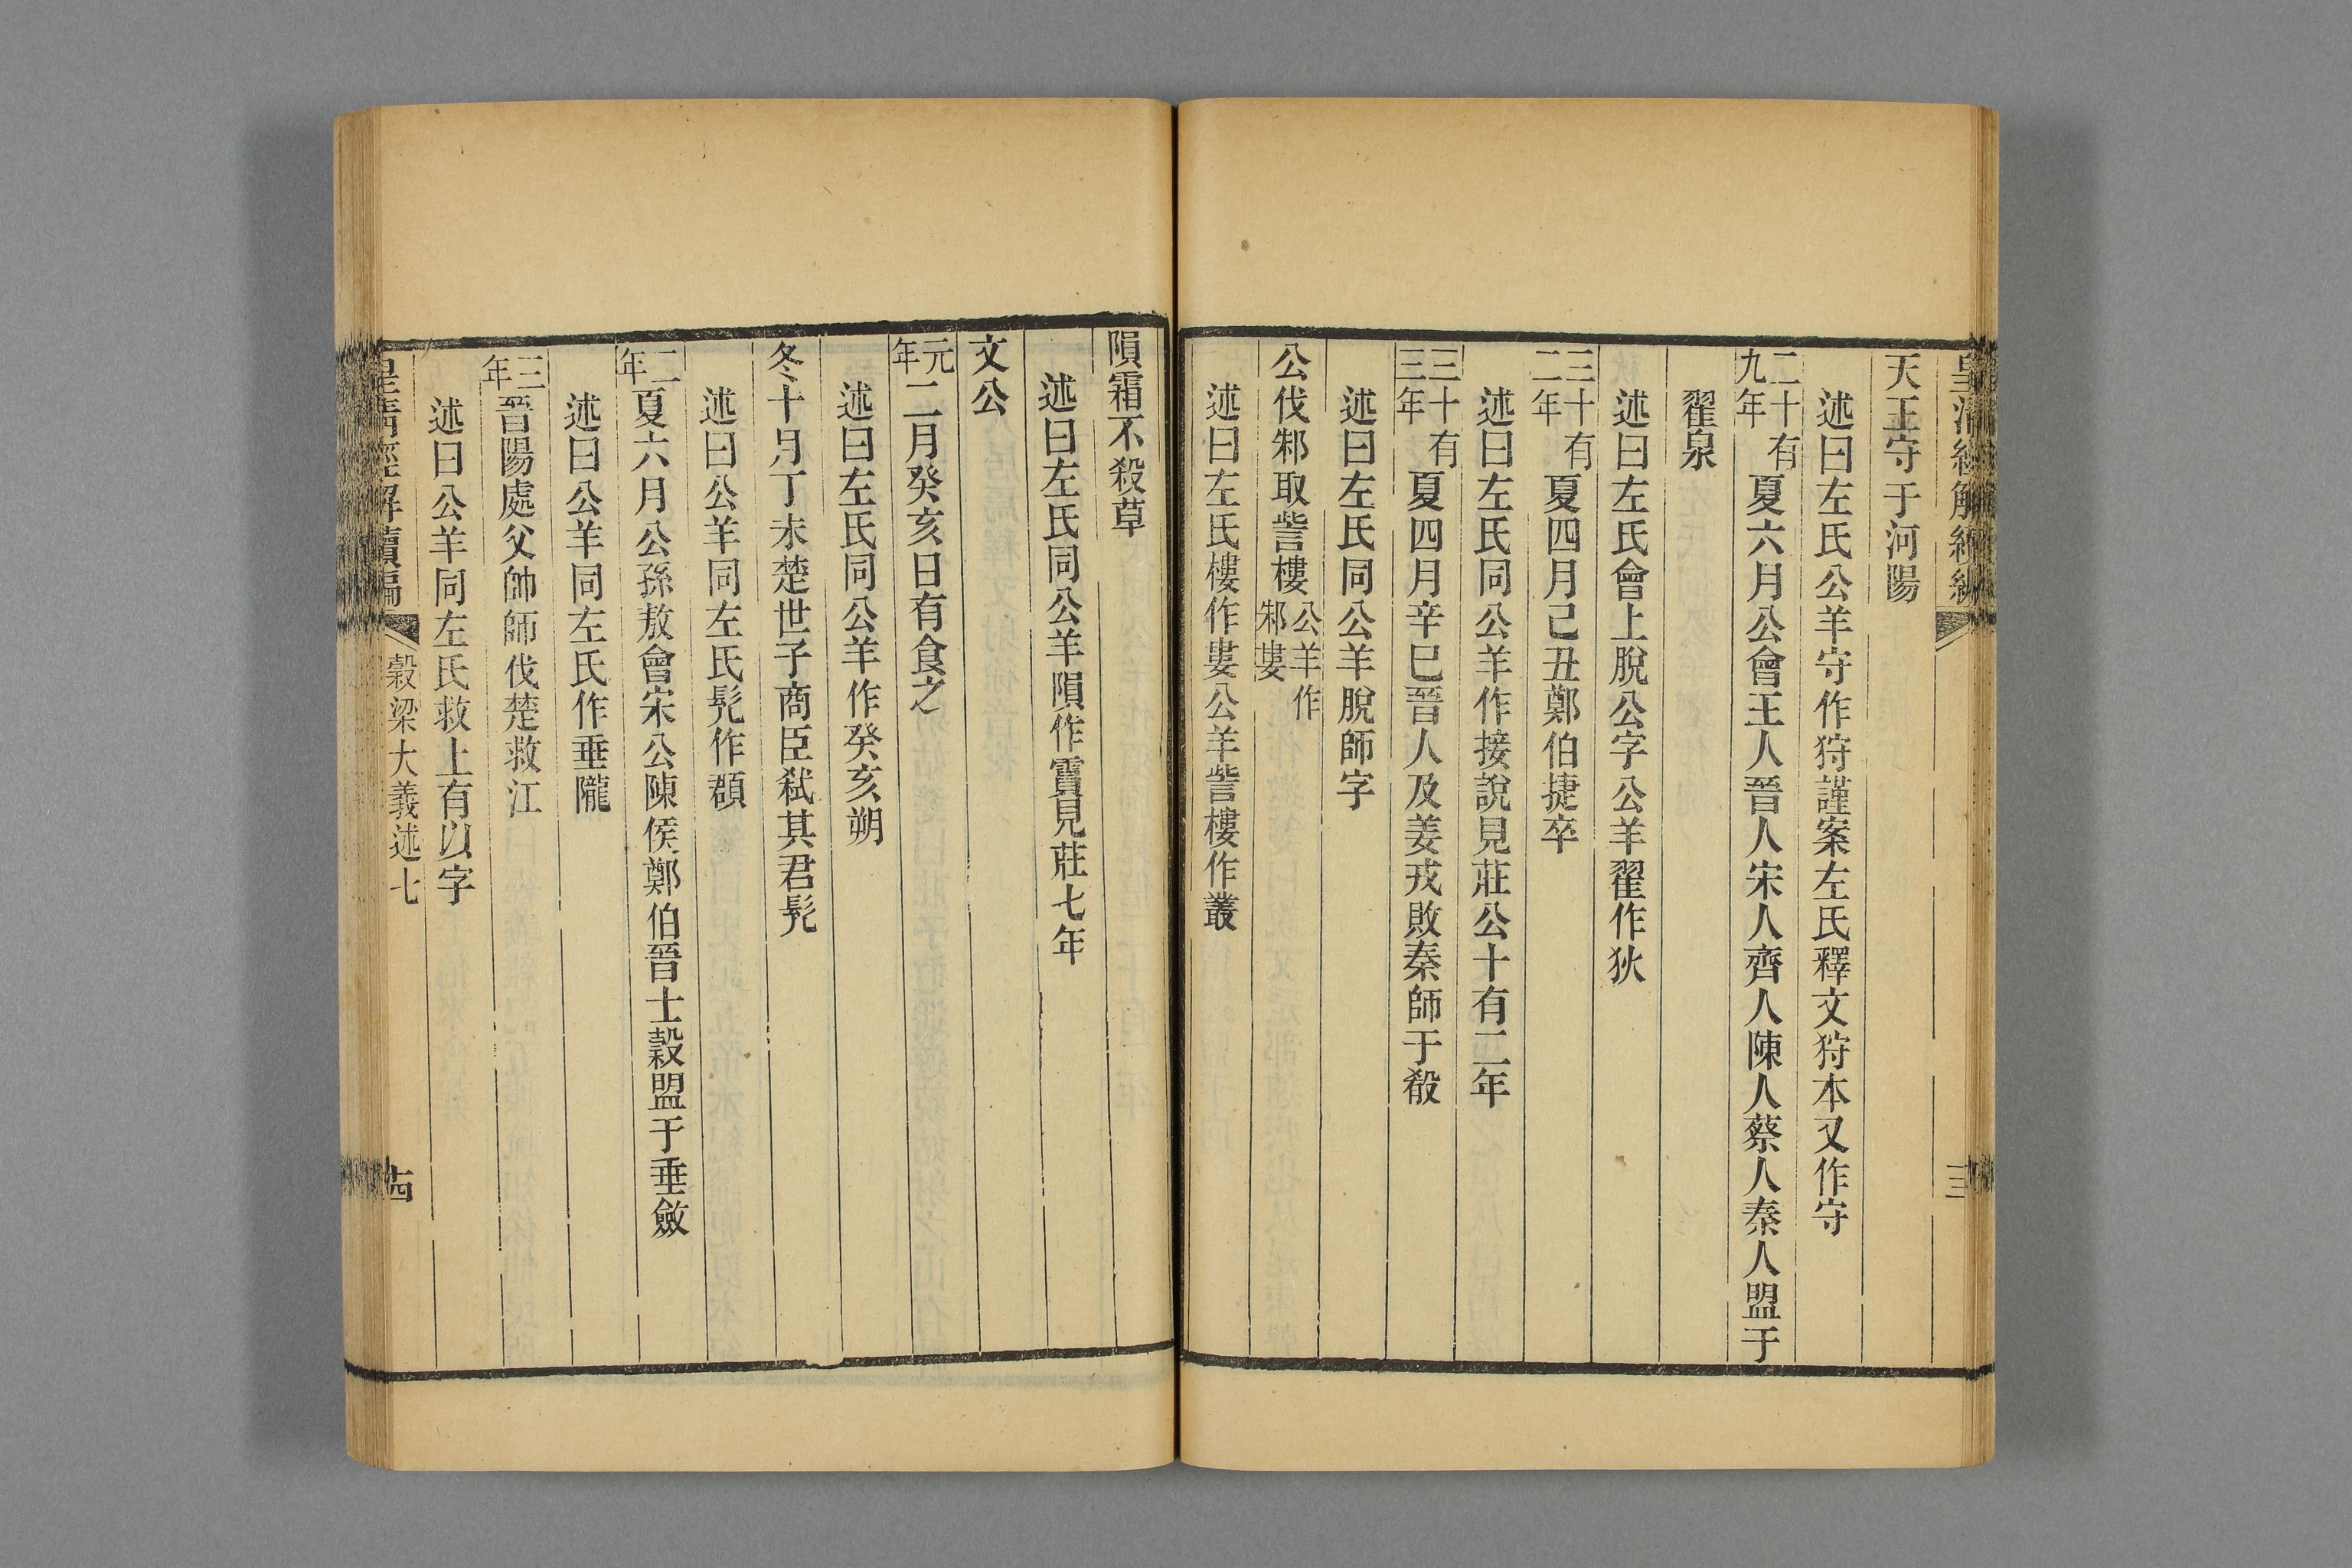 天王守于河陽
述曰左氏公羊守作狩謹案左氏釋文狩本又作守
二十有九年夏六月公會王人晉人宋人齊人陳人蔡人秦人盟于
翟泉
述曰左氏會上脫公字公羊翟作狄
三十有二年夏四月己丑鄭伯捷卒
述曰左氏同公羊作接說見莊公十有二年
三十有三年夏四月辛巳晉人及姜戎敗秦師于殽
述曰左氏同公羊脫師字
公伐邾取訾樓公羊作邾婁
述曰左氏樓作婁公羊訾樓作叢
隕霜不殺草
述曰左氏同公羊隕作霣見莊七年
文公
元年二月癸亥日有食之
述曰左氏同公羊作癸亥朔
冬十月丁未楚世子商臣弒其君髡
述曰公羊同左氏髡作頵
二年夏六月公孫敖會宋公陳侯鄭伯晉士穀盟于垂斂
述曰公羊同左氏作垂隴
三年晉陽處父帥師伐楚救江
述曰公羊同左氏救上有以字
皇清經解續編 穀梁大義述七 十四